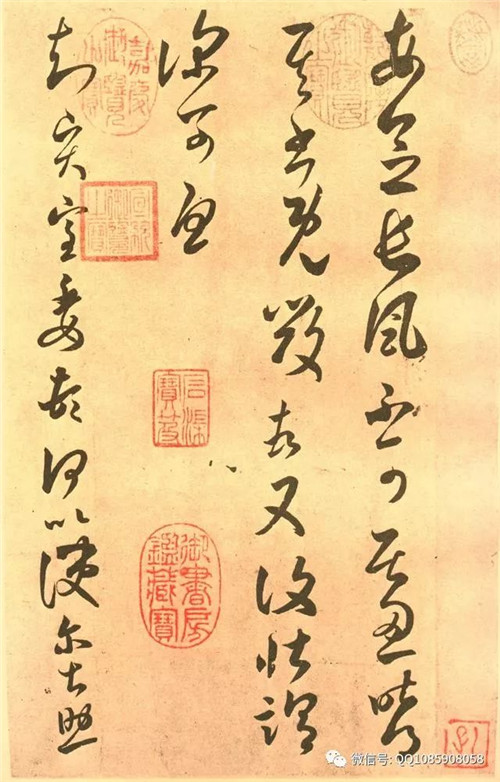 每念長風不可居忍昨得
其書既毀頓又復壯
深可憂
知賢室委頓何以便爾甚
嘉慶御覽之寶
宣統御覽之寶
石渠寶笈
御書房鑑藏寶
微信号: QQ1085908058